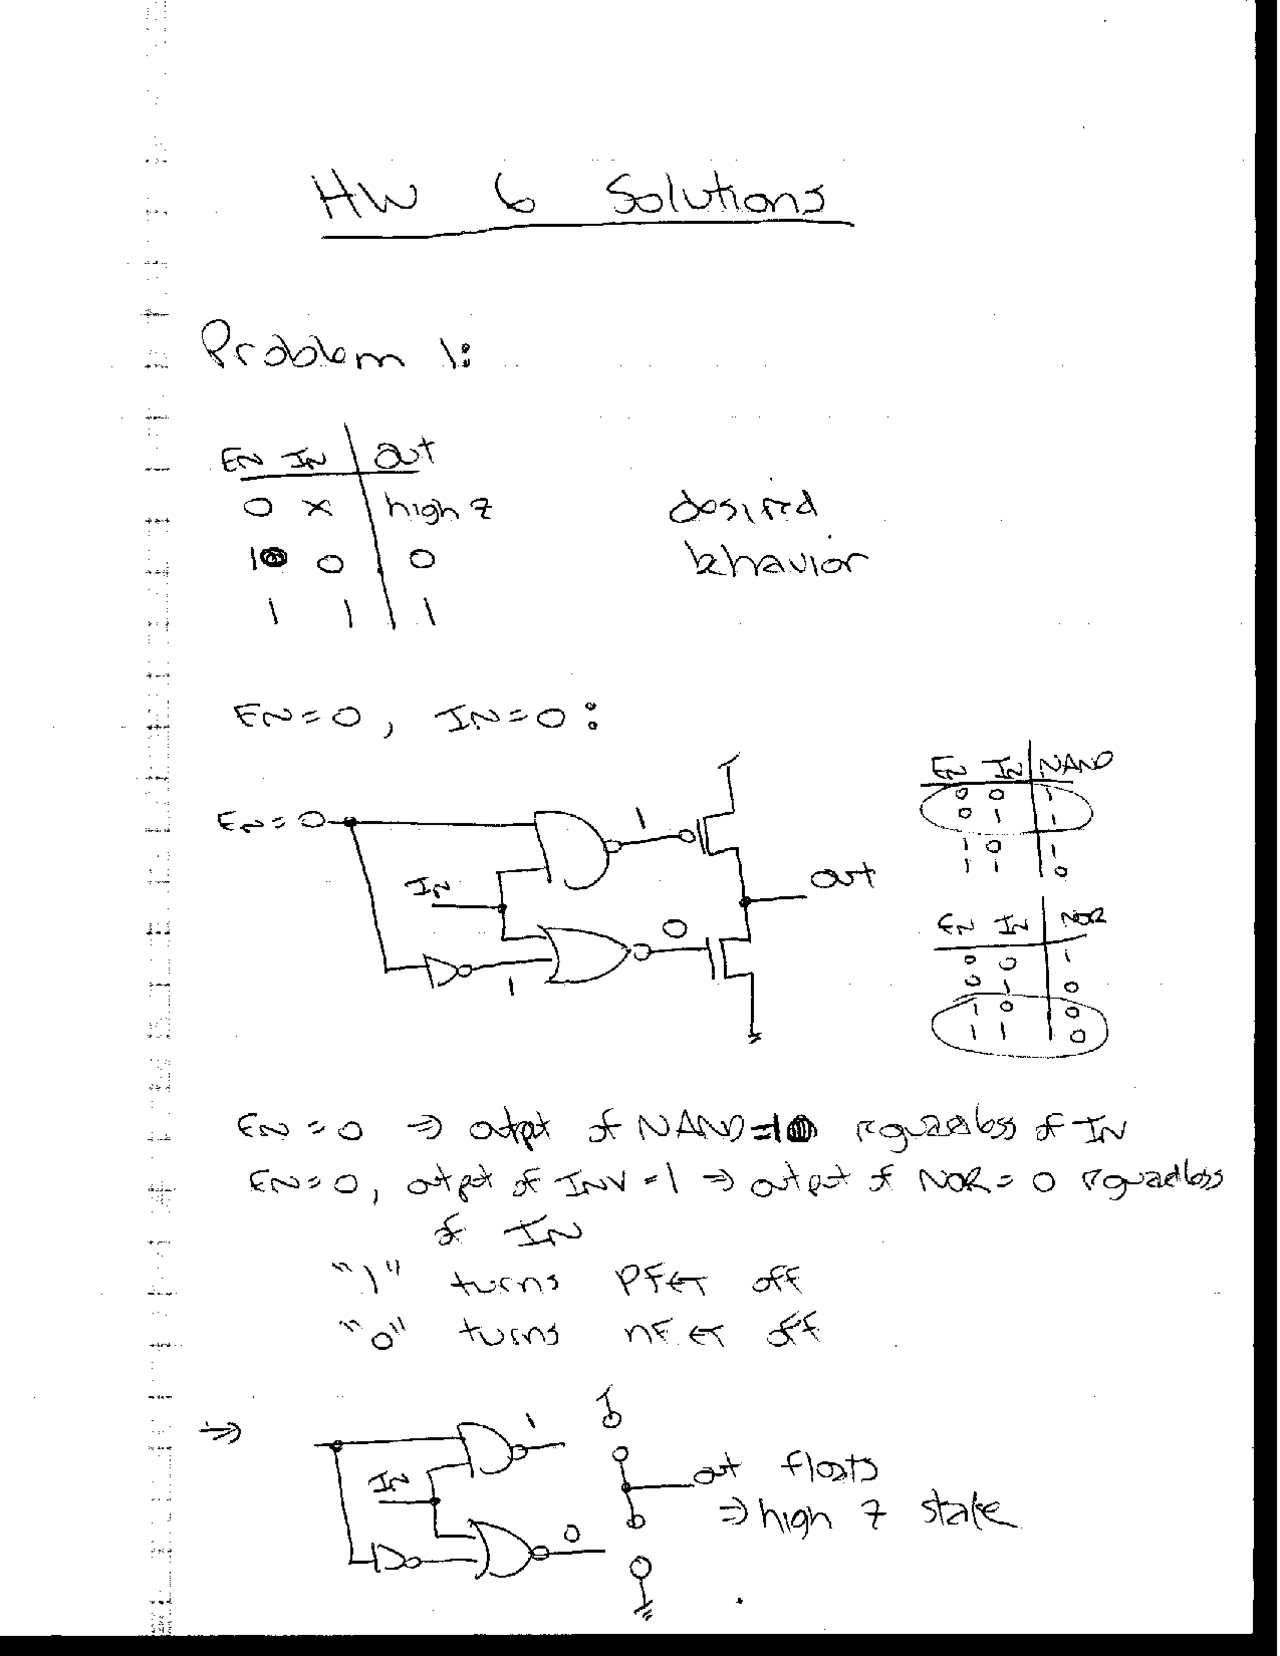 HW 6 Solutions
Problem 1:
EN IN out
0 x high z
1 0 0
1 1 1
desired
behavior
EN=0, IN=0:
EN=0
IN
1
1
0
out
EN IN NAND
0 0 1
0 1 1
1 0 1
1 1 0
EN IN NOR
0 0 1
0 1 0
1 0 0
1 1 0
EN=0 ⇒ output of NAND=1 reguardless of IN
EN=0, output of INV=1 ⇒ output of NOR=0 reguardless
of IN
"1" turns PFET off
"0" turns nFET off
⇒
IN
1
0
out floats
⇒ high z state